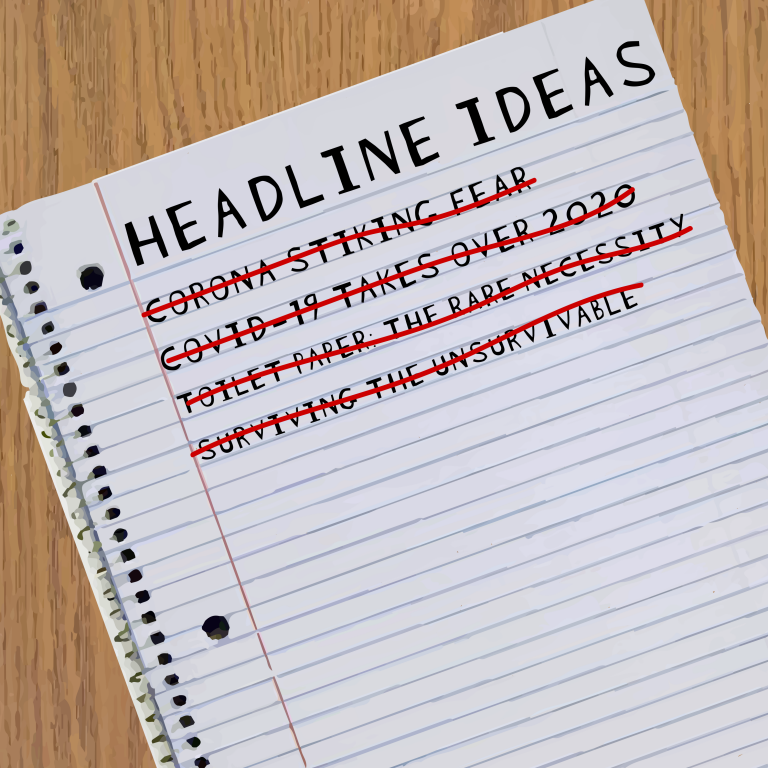 HEADLINE IDEAS
CORONA STIKING FEAR
COVID-19 TAKES OVER 2020
TOILET PAPER: THE RARE NECESSITY
SURVIVING THE UNSURVIVABLE